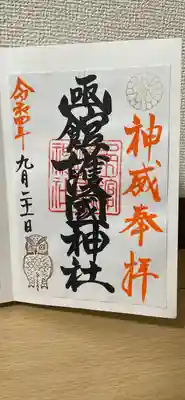 神威奉拝
函館護國神社
令和四年
九月二十一日